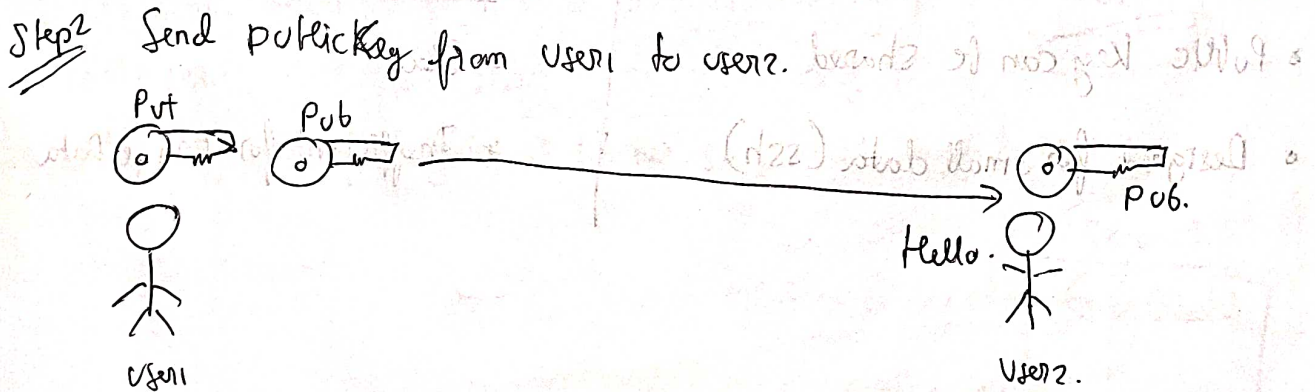 Step2 Send publicKey from user1 to user2.
Pvt Pub
Pub.
Hello.
User1
User2.